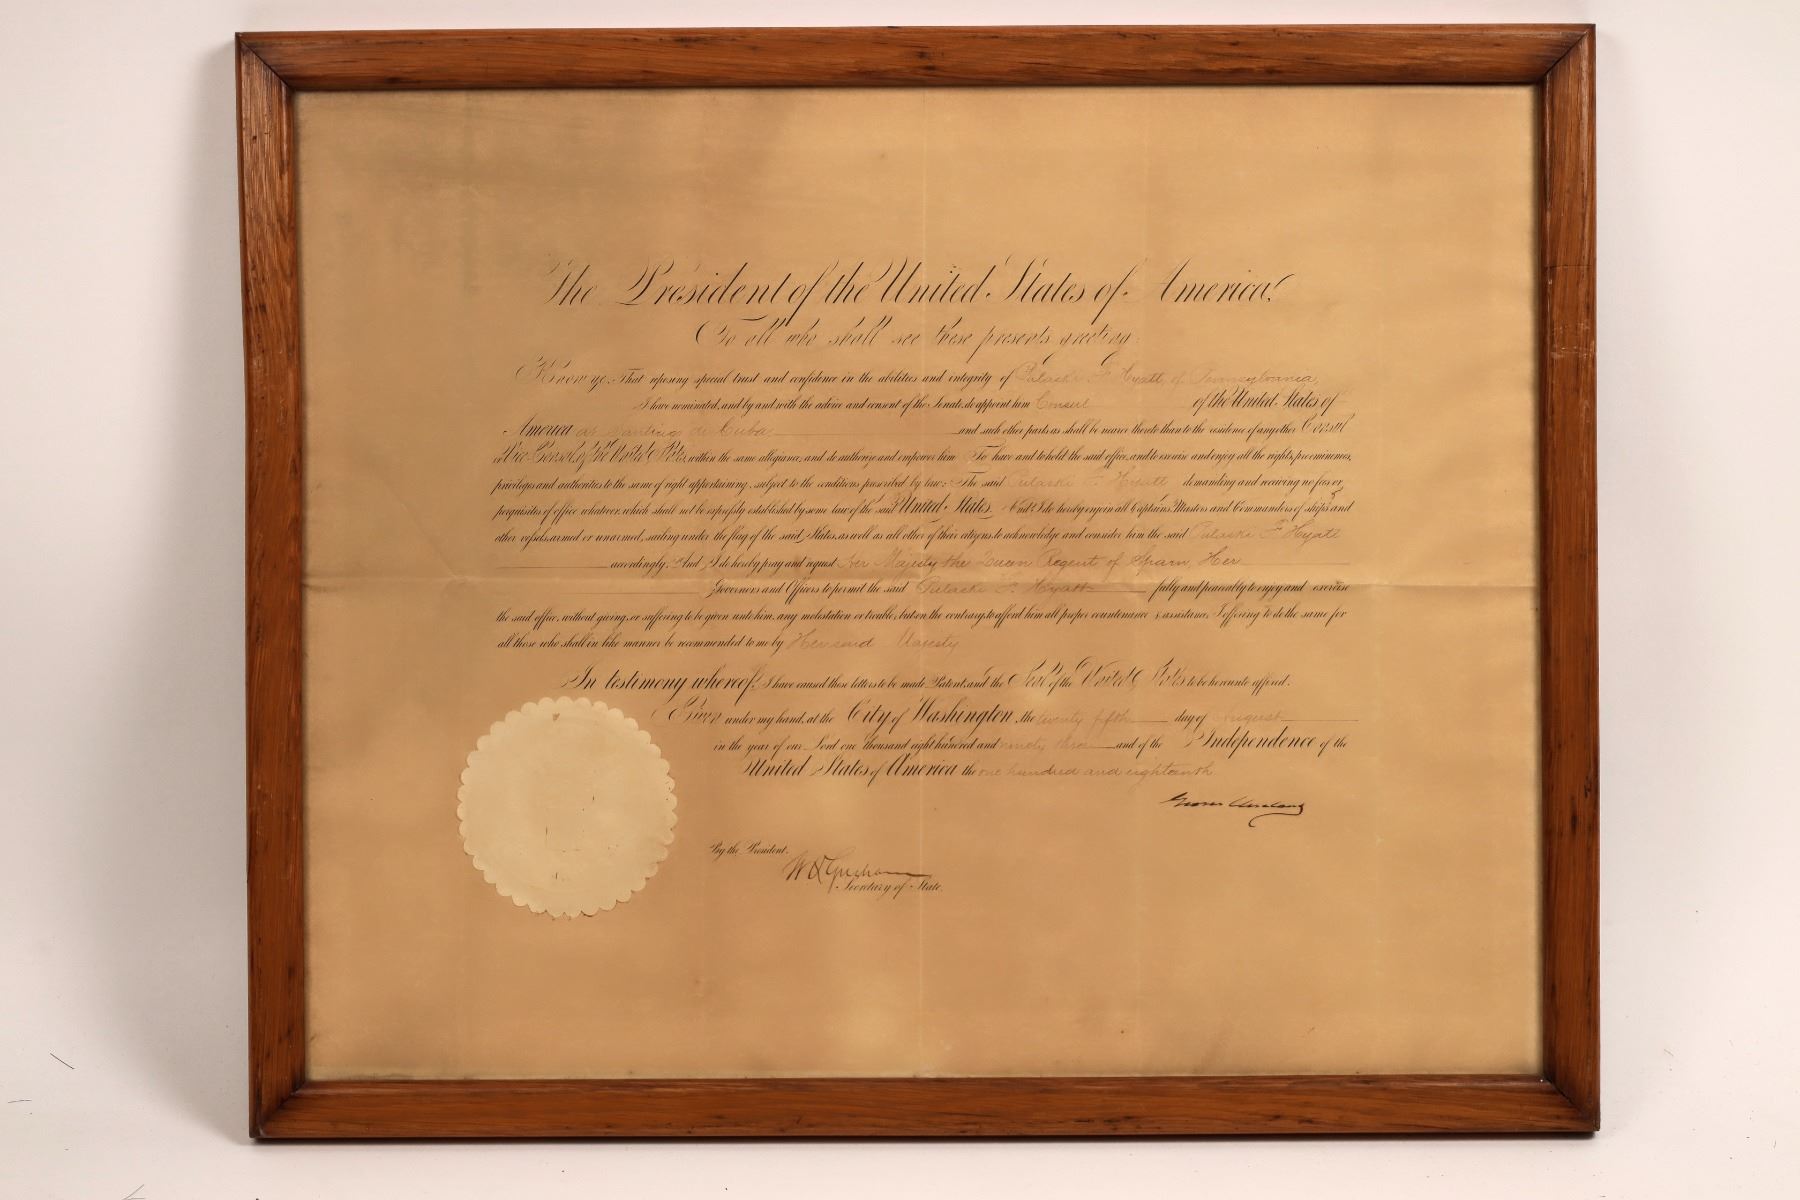 The President of the United States of America,
To all who shall see these presents, greeting:
Know ye, That reposing special trust and confidence in the abilities and integrity of Pulaski F. Hyatt, of Pennsylvania,
I have nominated, and by and with the advice and consent of the Senate, do appoint him Consul of the United States of
America at Santiago de Cuba, and such other parts as shall be nearer thereto than to the residence of any other Consul
or Vice-Consul of the United States, within the same allegiance; and do authorize and empower him To have and to hold the said office, and to exercise and enjoy all the rights, preeminences,
privileges and authorities to the same of right appertaining, subject to the conditions prescribed by law: The said Pulaski F. Hyatt demanding and receiving no fees or
perquisites of office whatever, which shall not be expressly established by some law of the said United States. And I do hereby enjoin all Captains, Masters and Commanders of ships and
other vessels, armed or unarmed, sailing under the flag of the said States, as well as all other of their citizens, to acknowledge and consider him the said Pulaski F. Hyatt
accordingly. And I do hereby pray and request Her Majesty the Queen Regent of Spain, Her
Governors and Officers to permit the said Pulaski F. Hyatt fully and peaceably to enjoy and exercise
the said office, without giving, or suffering to be given unto him, any molestation or trouble, but on the contrary, to afford him all proper countenance & assistance; I offering to do the same for
all those who shall in like manner be recommended to me by Her said Majesty
In testimony whereof, I have caused these letters to be made Patent, and the Seal of the United States to be hereunto affixed.
Given under my hand, at the City of Washington, the twenty fifth day of August
in the year of our Lord one thousand eight hundred and ninety three and of the Independence of the
United States of America the one hundred and eighteenth
Grover Cleveland
By the President.
W Q Gresham
Secretary of State.